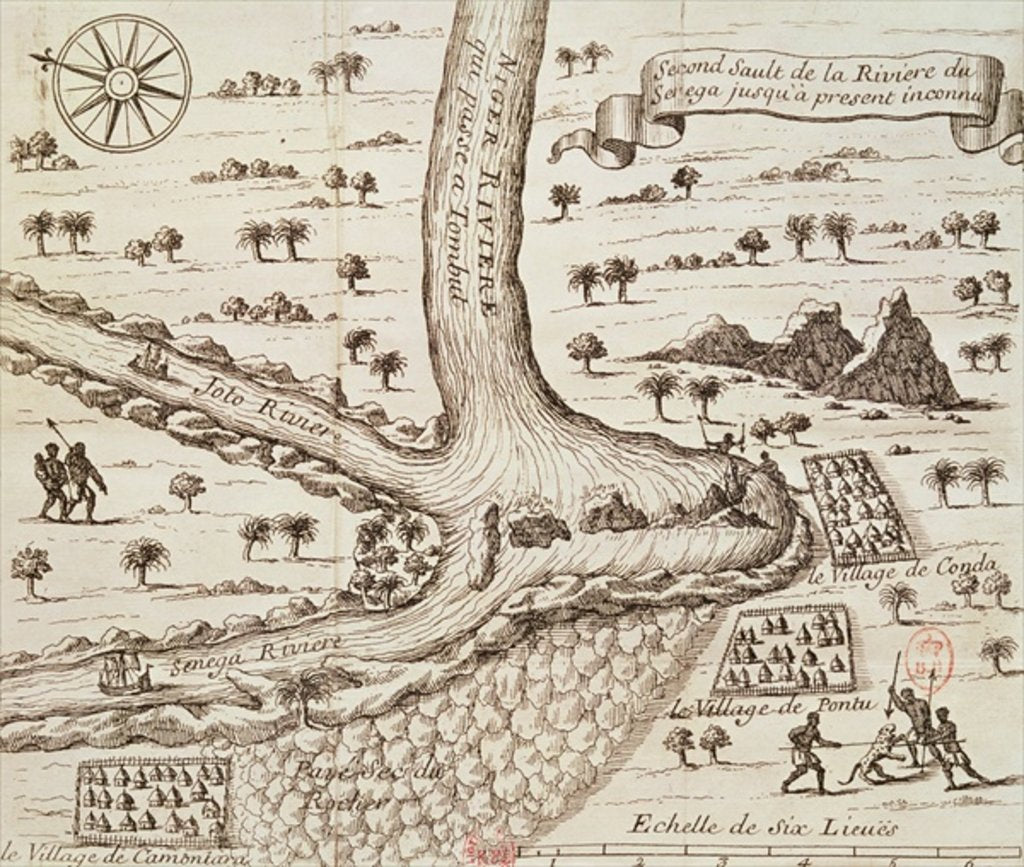 Second Sault de la Riviere du
Senega jusqu'à present inconnu
NIGER RIVIERE
qui passe a Tombut
Joto Riviere
Senega Riviere
le Village de Conda
le Village de Pontu
Pavé Sec du
Rocher
le Village de Camoniara
Echelle de Six Lieuës
1 2 3 4 5 6